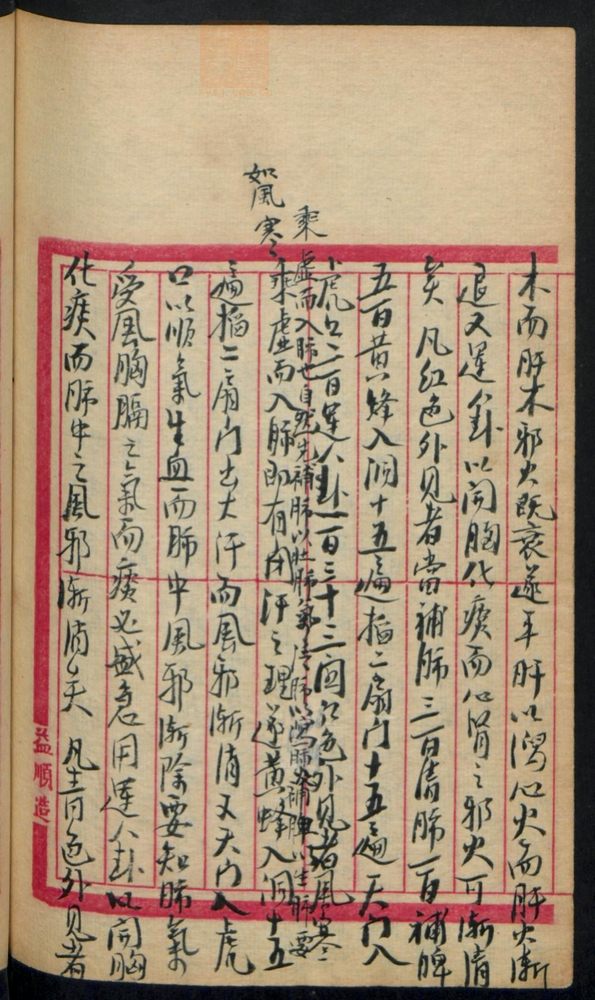 木而肝木邪火既衰遂平肝以瀉心火而肝火漸
退又運八卦以開胸化痰而心胃之邪火可漸清
矣 凡紅色外見者當補肺三百清肺一百補脾
五百黃蜂入洞十五遍掐二扇门十五遍天门入
虎口二百運八卦一百二十三因紅色外見者風寒
乘虛而入肺也自然先補肺以壯肺氣清肺以瀉肺火補脾以生肺要
如風寒乘虛而入肺即有闭汗之理遂黃蜂入洞十五
遍掐二扇门出大汗而風邪漸消又天门入虎
口以順氣生血而肺中風邪漸除要知肺氣
受風胸膈之氣而痰必盛急用運八卦以開胸
化痰而肺中之風邪漸消矣 凡青色外見者
益順造